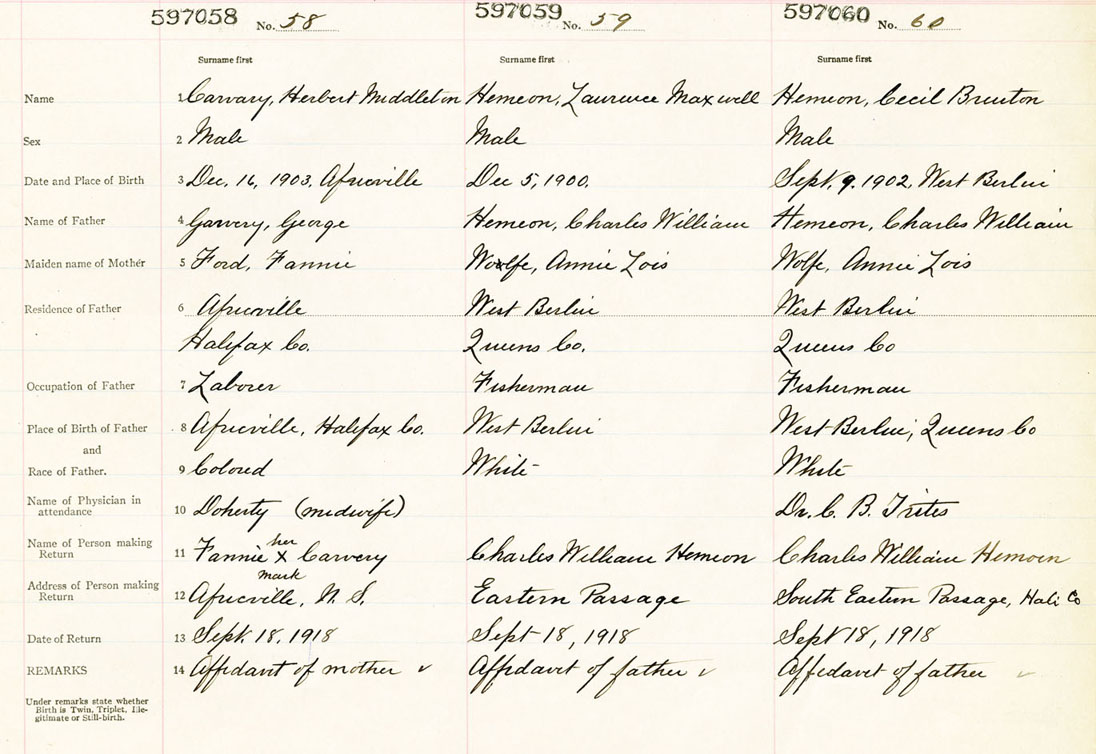 597058 No. 58 597059 No. 59 597060 No. 60
Surname first Surname first Surname first
Name 1 Carvary, Herbert Middleton Hemeon, Laurence Maxwell Hemeon, Cecil Bruton
Sex 2 Male Male Male
Date and Place of Birth 3 Dec. 16, 1903, Africville Dec 5, 1900. Sept. 9. 1902, West Berlin
Name of Father 4 Garvery, George Hemeon, Charles William Hemeon, Charles William
Maiden name of Mother 5 Ford, Fannie Wolfe, Annie Lois Wolfe, Annie Lois
Residence of Father 6 Africville West Berlin West Berlin
Halifax Co. Queens Co. Queens Co
Occupation of Father 7 Laborer Fisherman Fisherman
Place of Birth of Father 8 Africville, Halifax Co. West Berlin West Berlin, Queens Co
and
Race of Father. 9 Colored White White
Name of Physician in
attendance 10 Doherty (midwife) Dr. C. B. Trites
Name of Person making
Return 11 Fannie her X mark Carvery Charles William Hemeon Charles William Hemoen
Address of Person making
Return 12 Africville, N. S. Eastern Passage South Eastern Passage, Hali Co
Date of Return 13 Sept. 18, 1918 Sept 18, 1918 Sept 18, 1918
REMARKS 14 Affidavit of mother ✓ Affidavit of father ✓ Affidavit of father ✓
Under remarks state whether
Birth is Twin, Triplet, Ille-
gitimate or Still-birth.